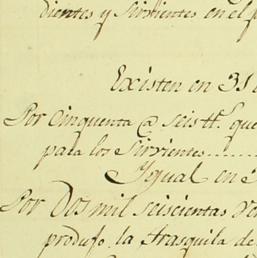 dientes y Sirvientes en el p
Existen en 31 d
Por cinquenta @ seis tt.^s que
para los Sirvientes......
Ygual en
Por Dos mil seiscientas ve
produjo la trasquila de